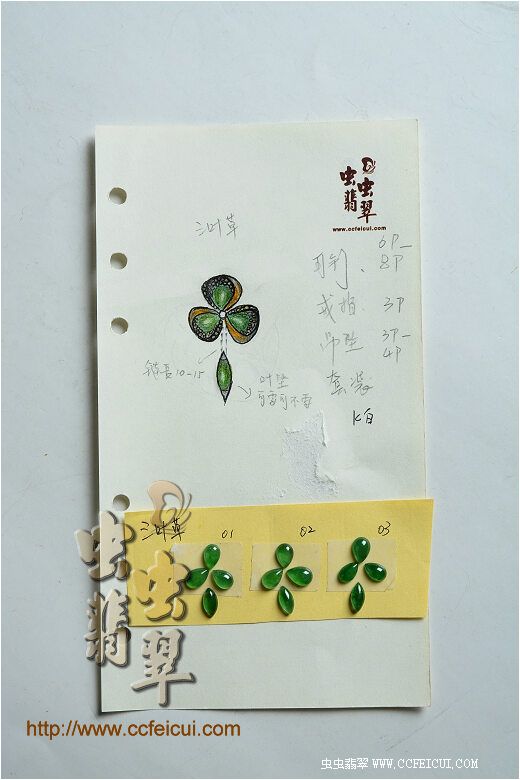 虫虫翡翠
www.ccfeicui.com
三叶草
耳钉、 6P-8P
戒指 3P
吊坠 3P-4P
套装
K白
链长10-15
叶坠
可要可不要
三叶草 01 02 03
虫虫翡翠
http://www.ccfeicui.com
虫虫翡翠 www.CCFEICUI.COM